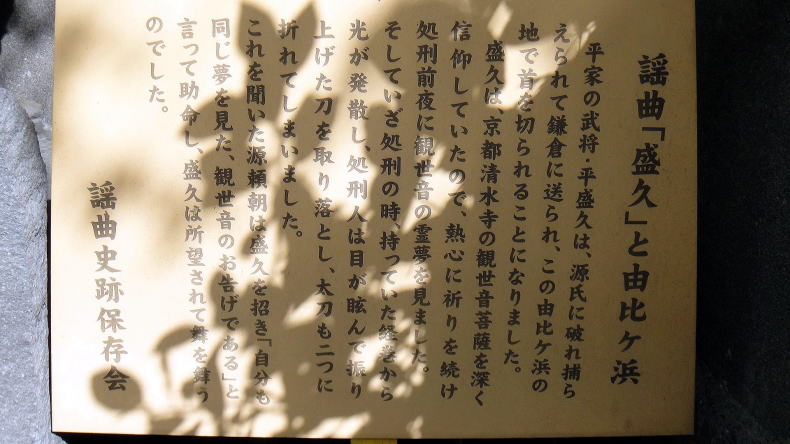 謡曲「盛久」と由比ヶ浜
平家の武将・平盛久は、源氏に破れ捕ら
えられて鎌倉に送られ、この由比ケ浜の
地で首を切られることになりました。
盛久は、京都清水寺の観世音菩薩を深く
信仰していたので、熱心に祈りを続け
処刑前夜に観世音の霊夢を見ました。
そしていざ処刑の時、持っていた経巻から
光が発散し、処刑人は目が眩んで振り
上げた刀を取り落とし、太刀も二つに
折れてしまいました。
これを聞いた源頼朝は盛久を招き「自分も
同じ夢を見た、観世音のお告げである」と
言って助命し、盛久は所望されて舞を舞う
のでした。
謡曲史跡保存会